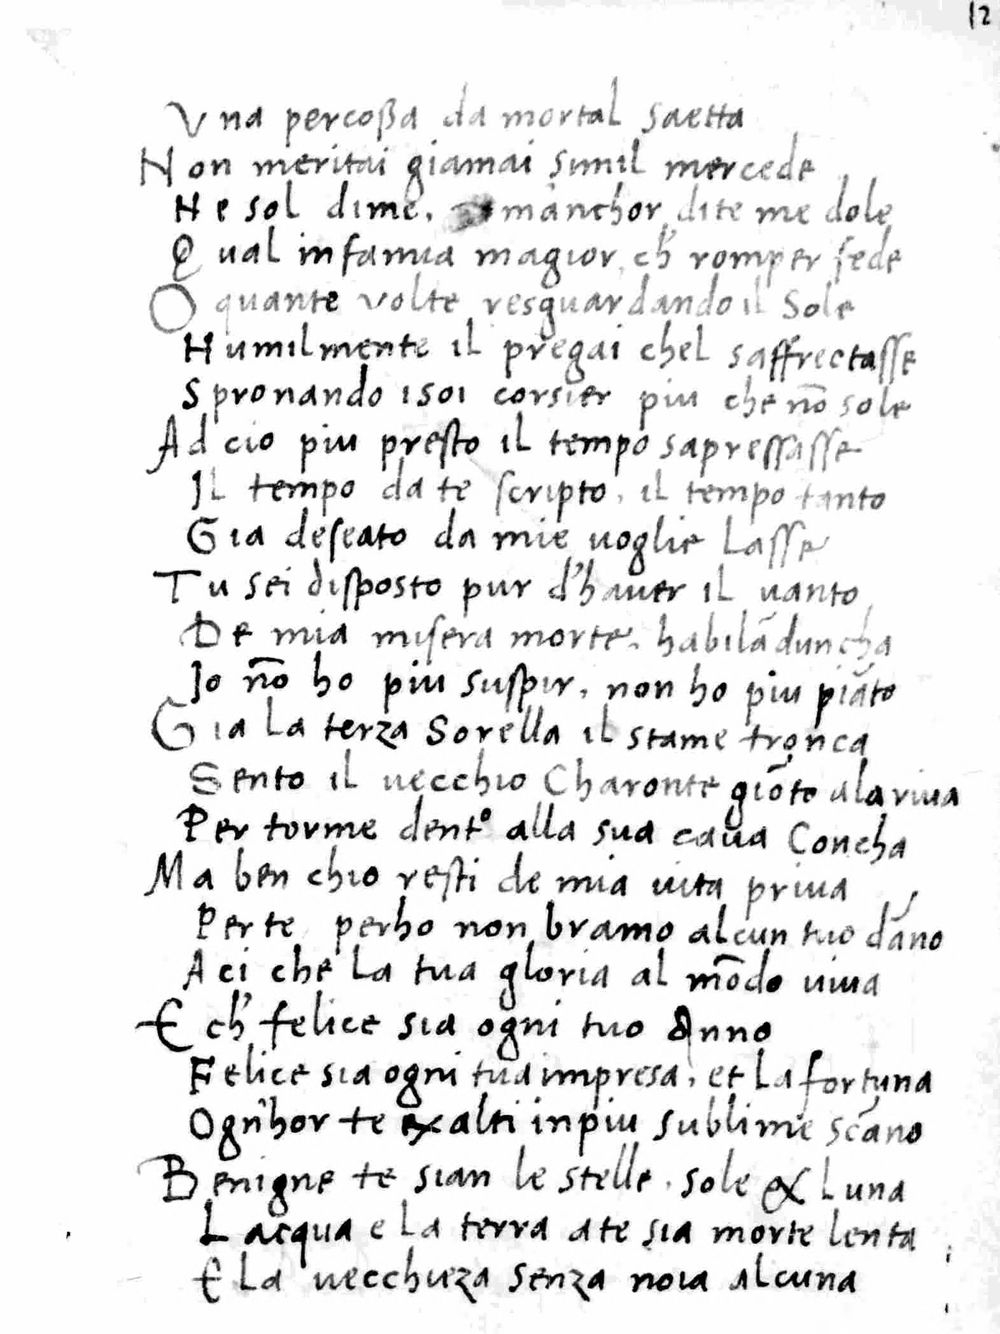 12
Una percoßa da mortal saetta
Non meritai giamai simil mercede
Ne sol dime, manchor dite me dole
Qual infamia magior, ch' romper fede
O quante volte resguardando il Sole
Humilmente il pregai chel saffrectasse
Spronando i soi corsier piu che nō sole
Ad cio piu presto il tempo sapressasse
Il tempo da te scripto, il tempo tanto
Gia deseato da mie uoglie Lasse
Tu sei disposto pur d'hauer il uanto
De mia misera morte, habilā duncha
Io nō ho piu suspir, non ho piu piāto
Gia La terza Sorella il stame tronca
Sento il uecchio Charonte giōto ala riua
Per torme dent° alla sua caua Concha
Ma ben chio resti de mia uita priua
Per te perho non bramo alcun tuo dāno
Aci che La tua gloria al mōdo uiua
E ch' felice sia ogni tuo Anno
Felice sia ogni tua impresa, et La fortuna
Ogn'hor te exalti in piu sublime scāno
Benigne te sian le stelle, sole & Luna
Lacqua e La terra a te sia morte lenta
E La uecchieza senza noia alcuna